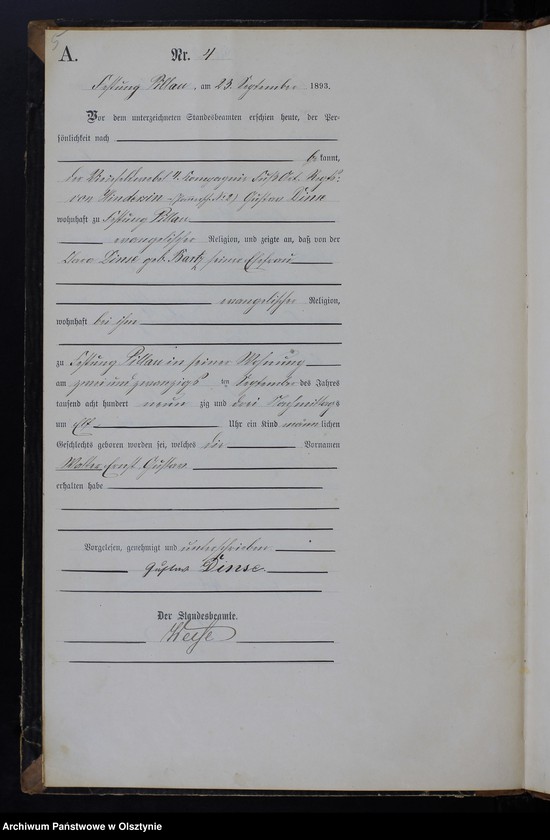 5
A. Nr. 4
Festung Pillau, am 23 September 1893.
Vor dem unterzeichneten Standesbeamten erschien heute, der Per-
sönlichkeit nach
be kannt,
der Vicefeldwebel 4. Kompagnie Fuß Art. Regts:
von Hindersin Gustav Dinse
wohnhaft zu Festung Pillau
evangelischer Religion, und zeigte an, daß von der
Clara Dinse geb. Bartz seiner Ehefrau
evangelischer Religion,
wohnhaft bei ihm
zu Festung Pillau in seiner Wohnung
am zwei und zwanzigsten September des Jahres
tausend acht hundert neun zig und drei Nachmittags
um elf Uhr ein Kind männlichen
Geschlechts geboren worden sei, welches die Vornamen
Walter Ernst Gustav
erhalten habe
Vorgelesen, genehmigt und unterschrieben
Gustav Dinse
Der Standesbeamte.
Archiwum Państwowe w Olsztynie